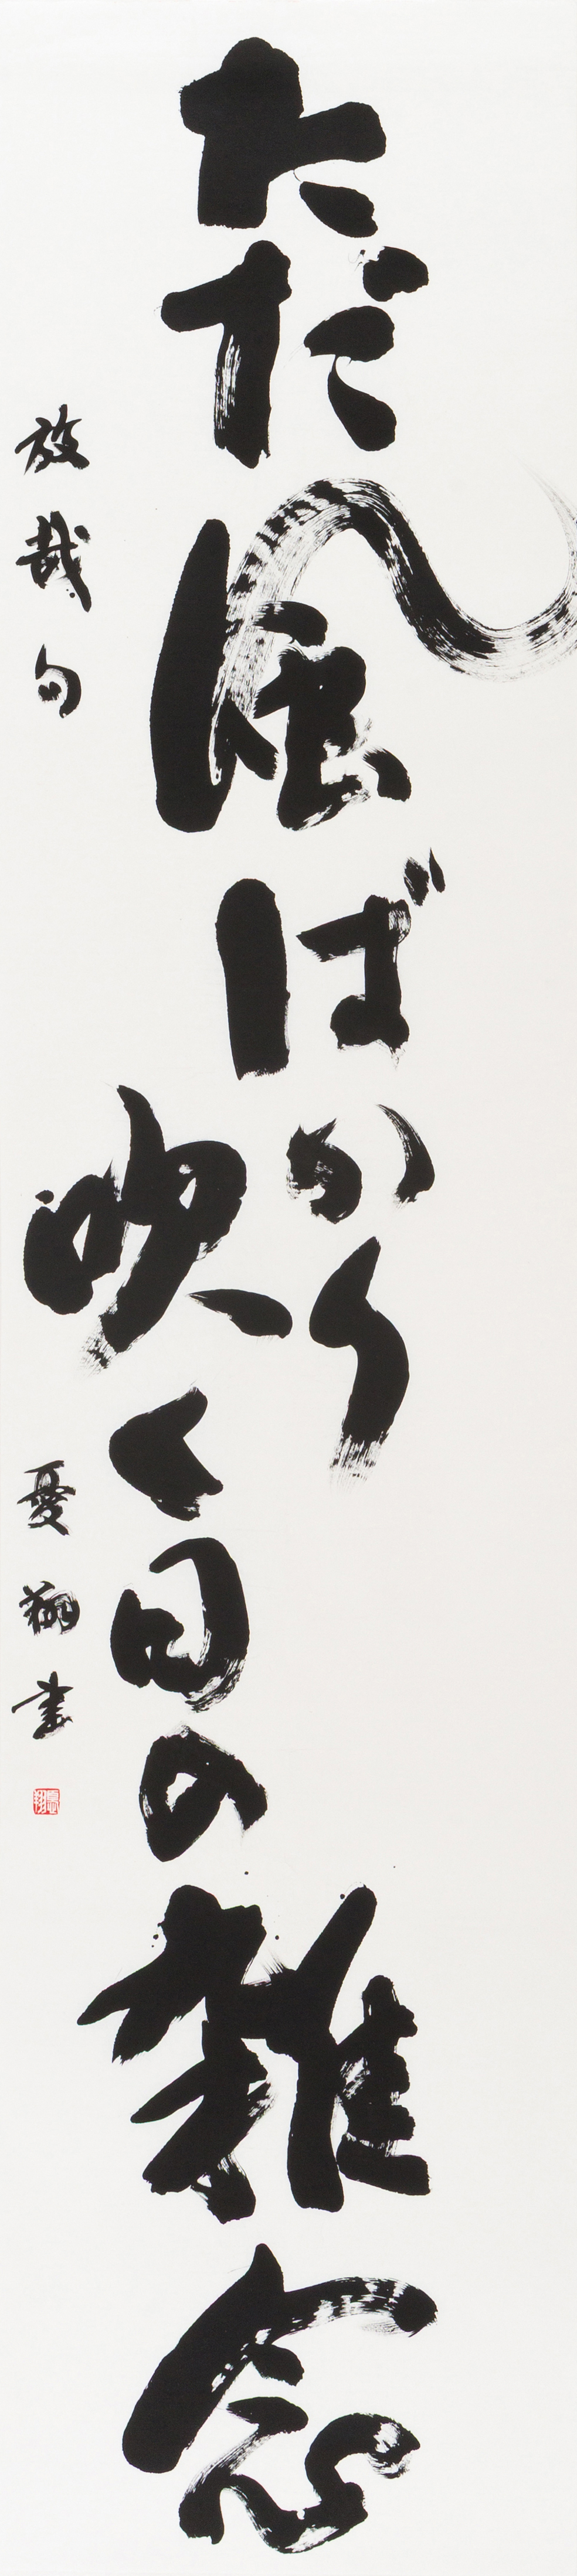 ただ風ばかり
吹く日の雑念
放哉句
憂翔書